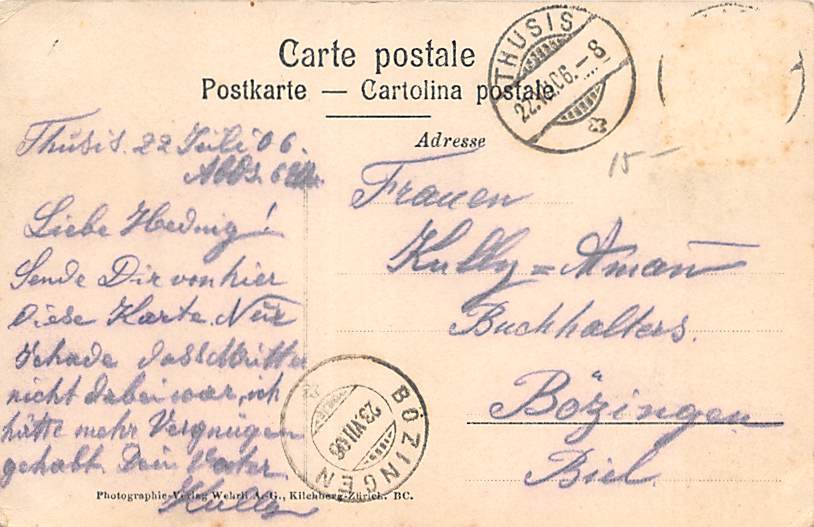 Carte postale
Postkarte — Cartolina postale
Adresse
THUSIS
22.VII.06.–8
15–
Thusis. 22 Juli 06.
Abds. 6
Liebe Hedwig!
Sende Dir von hier
diese Karte. Nur
schade dass Mutter
nicht dabei war, ich
hätte mehr Vergnügen
gehabt. Dein Vater
Kully
Frauen
Kully=Amañ
Buchhalters.
Bözingen
Biel.
BÖZINGEN
23.VII.06
Photographie-Verlag Wehrli A.-G., Kilchberg-Zürich. BC.